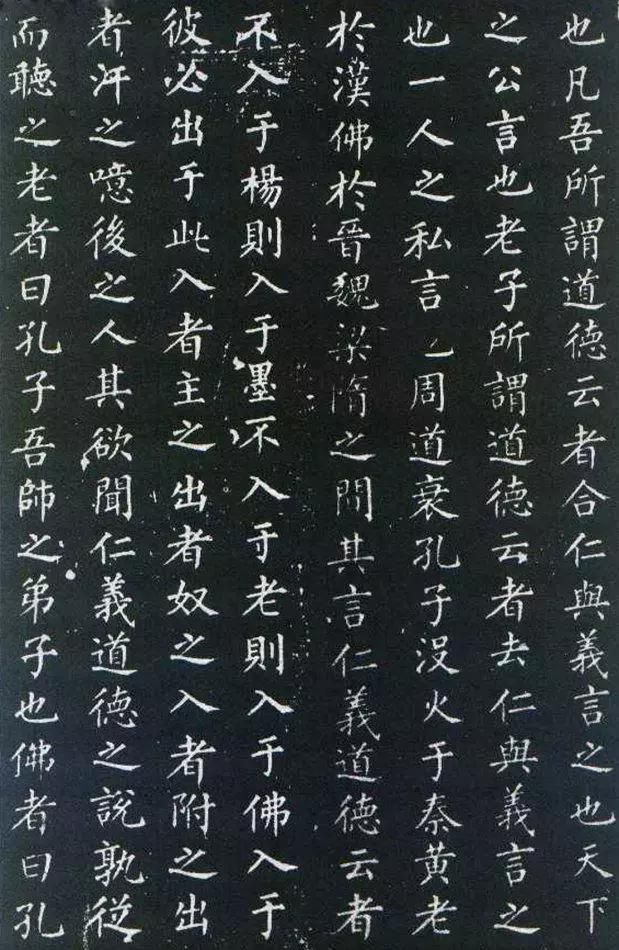 也凡吾所謂道德云者合仁與義言之也天下
之公言也老子所謂道德云者去仁與義言之
也一人之私言周道衰孔子沒火于秦黃老
於漢佛於晉魏梁隋之間其言仁義道德云者
不入于楊則入于墨不入于老則入于佛入于
彼必出于此入者主之出者奴之入者附之出
者汙之噫後之人其欲聞仁義道德之說孰從
而聽之老者曰孔子吾師之弟子也佛者曰孔